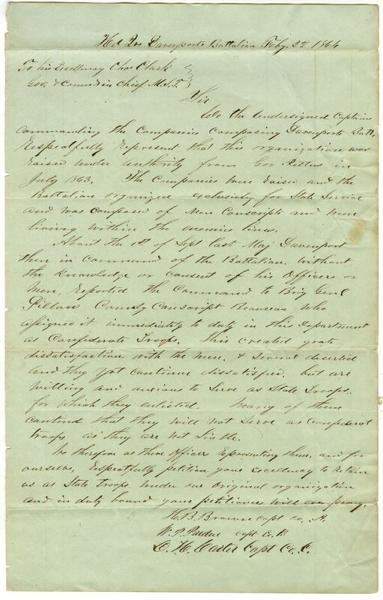 Hd Qrs Davenports Battalion Feby 22d 1864
To his Excellency Chas Clark
Gov. & Comd in Chief
Sir
We the undersigned Captains
commanding the Companies composing Davenports Batt.
Respectfully represent that this organization was
raised under authority from Gov Pettus in
July 1863. The Companies were raised and the
Battalion organized exclusively for State Service
and was composed of Non Conscripts and men
living within the enemies lines.
About the 1st of Sept last Maj Davenport
then in command of the Battalion, without
the knowledge or consent of his Officers or
men, reported the Command to Brig Genl
Pillow Comdg Conscript Bureau who
assigned it immediately to duty in this Department
as Confederate Troops. This created great
dissatisfaction with the men, & several deserted
and they yet continue dissatisfied, but are
willing and anxious to serve as State Troops,
for which they enlisted. Many of them
contend that they will not serve as confederate
troops, as they are not liable.
We therefore as their Officers representing them, and for
ourselves, Respectfully petition your excellency to retain
us as State Troops under our original organization
and in duty bound your petitioners will ever pray.
H. B. Capt Co. A.
W. P. Capt Co. B
L. H. Capt Co. C.